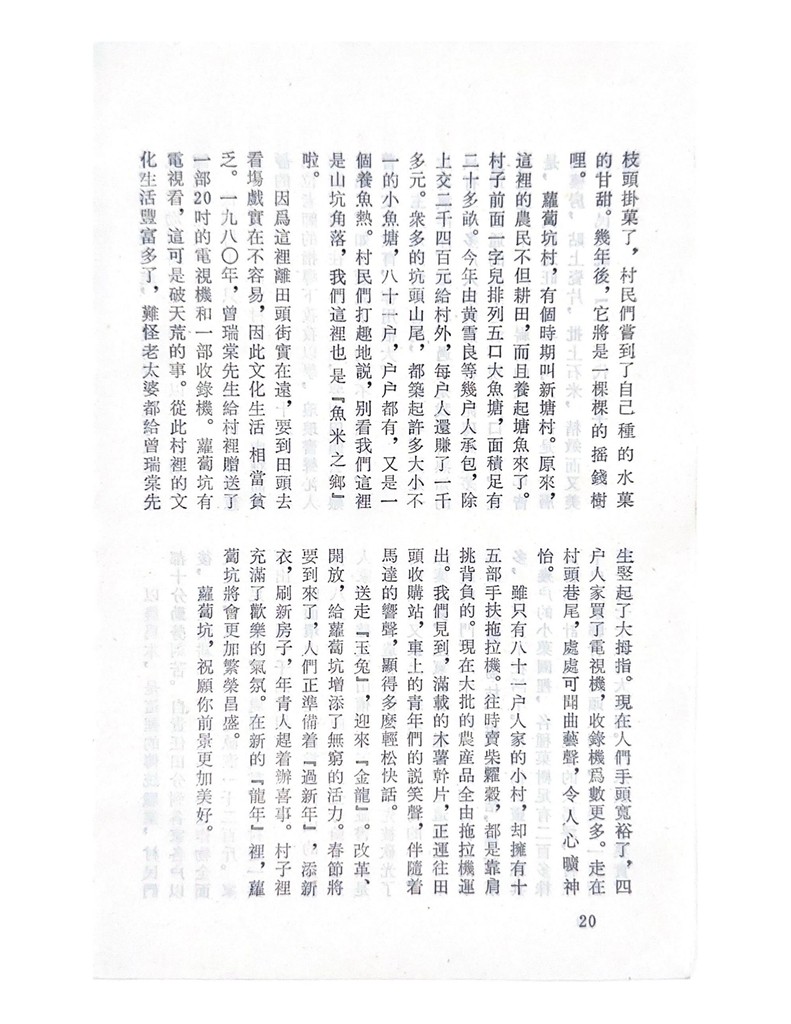 枝頭掛菓了，村民們嘗到了自己種的水菓
的甘甜。幾年後，它將是一棵棵的摇錢樹
哩。
蘿蔔坑村，有個時期叫新塘村。原來，
這裡的農民不但耕田，而且養起塘魚來了。
村子前面一字兒排列五口大魚塘，面積足有
二十多畝。今年由黄雪良等幾户人承包，除
上交二千四百元給村外，每户人還賺了一千
多元。衆多的坑頭山尾，都築起許多大小不
一的小魚塘，八十一户，户户都有，又是一
個養魚熱。村民們打趣地説，别看我們這裡
是山坑角落，我們這裡也是『魚米之鄉』
啦。
因爲這裡離田頭街實在遠，要到田頭去
看塲戲實在不容易，因此文化生活相當貧
乏。一九八〇年，曾瑞棠先生給村裡贈送了
一部20吋的電視機和一部收錄機。蘿蔔坑有
電視看，這可是破天荒的事。從此村裡的文
化生活豐富多了，難怪老太婆都給曾瑞棠先
生竪起了大拇指。現在人們手頭寬裕了，四
户人家買了電視機，收錄機爲數更多。走在
村頭巷尾，處處可聞曲藝聲，令人心曠神
怡。
雖只有八十一户人家的小村，却擁有十
五部手扶拖拉機。往時賣柴糶穀，都是靠肩
挑背負的。現在大批的農産品全由拖拉機運
出。我們見到，滿載的木薯幹片，正運往田
頭收購站，車上的青年們的説笑聲，伴隨着
馬達的響聲，顯得多麽輕松快話。
送走『玉兔』，迎來『金龍』。改革、
開放，給蘿蔔坑增添了無窮的活力。春節將
要到來了，人們正準備着『過新年』，添新
衣，刷新房子，年青人趕着辦喜事。村子裡
充滿了歡樂的氣氛。在新的『龍年』裡，蘿
蔔坑將會更加繁榮昌盛。
蘿蔔坑，祝願你前景更加美好。
20